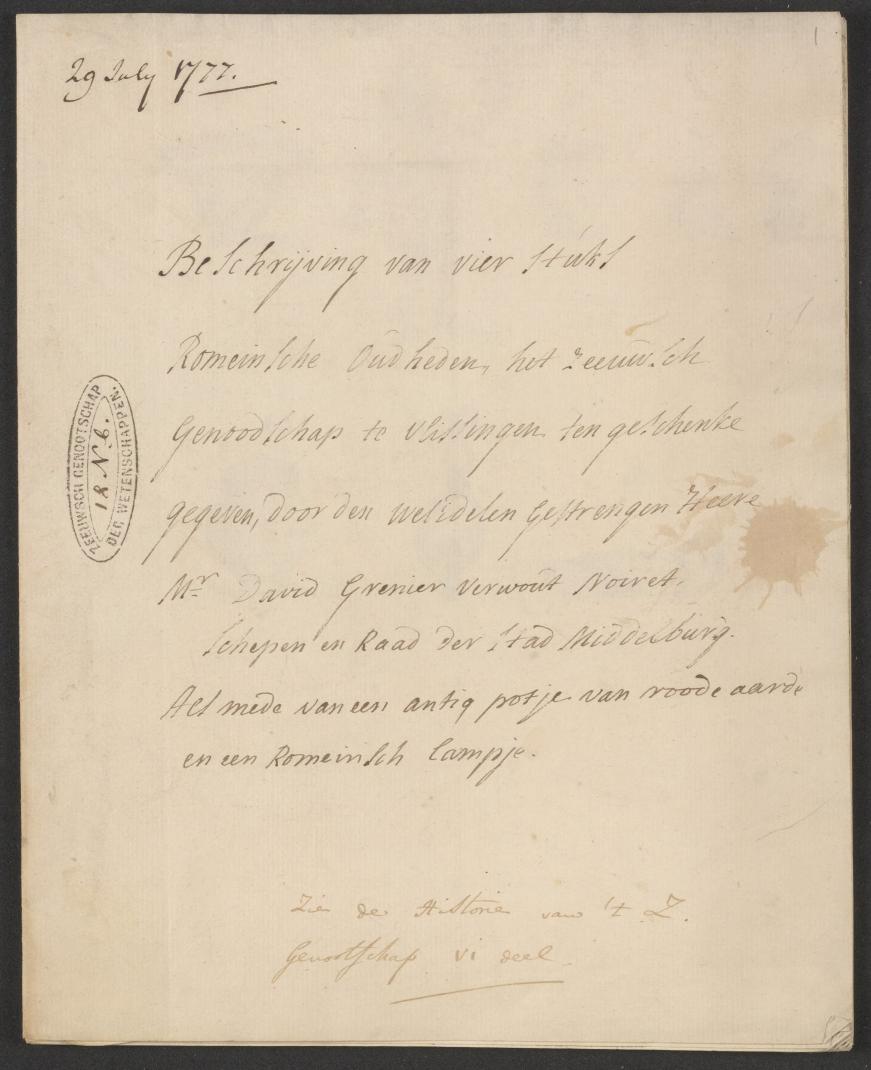 1
29 July 1777.
Beschrijving van vier stuks
Romeinsche Oudheden, het Zeeuwsch
Genoodschap te Vlissingen ten geschenke
gegeven, door den welEdelen Gestrengen Heere
Mr David Grenier Verwout Noiret.
schepen en Raad der Stad Middelburg.
Als mede van een antiq potje van roode aarde
en een Romeinsch lampje.
ZEEUWSCH GENOOTSCHAP
DER WETENSCHAPPEN.
Zie de Historie van 't Z.
Genootschap VI deel.